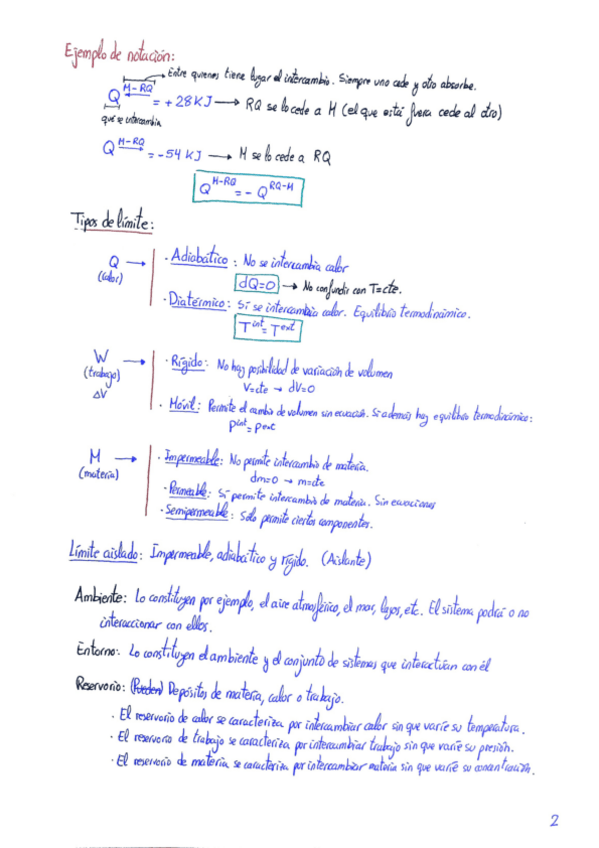 Ejemplo de notación:
Entre quienes tiene lugar el intercambio. Siempre uno cede y otro absorbe.
Q^M-RQ = + 28 KJ → RQ se lo cede a M (el que está fuera cede al otro)
qué se intercambia
Q^M-RQ = - 54 KJ → M se lo cede a RQ
Q^M-RQ = - Q^RQ-M
Tipos de límite:
Q → · Adiabático : No se intercambia calor
(calor)
dQ=0 → No confundir con T=cte.
· Diatérmico: Sí se intercambia calor. Equilibrio termodinámico.
T^int = T^ext
W → · Rígido: No hay posibilidad de variación de volumen
(trabajo)
V=cte → dV=0
ΔV
· Móvil: Permite el cambio de volumen sin ecuación. Si además hay equilibrio termodinámico:
p^int = p^ext
M → · Impermeable: No permite intercambio de materia.
(materia)
dm=0 → m=cte
· Permeable: Sí permite intercambio de materia. Sin ecuaciones
· Semipermeable: Sólo permite ciertos componentes.
Límite aislado: Impermeable, adiabático y rígido. (Aislante)
Ambiente: Lo constituyen por ejemplo, el aire atmosférico, el mar, lagos, etc. El sistema podrá o no
interaccionar con ellos.
Entorno: Lo constituyen el ambiente y el conjunto de sistemas que interactúan con él
Reservorio: (Pueden) Depósitos de materia, calor o trabajo.
· El reservorio de calor se caracteriza por intercambiar calor sin que varíe su temperatura.
· El reservorio de trabajo se caracteriza por intercambiar trabajo sin que varíe su presión.
· El reservorio de materia se caracteriza por intercambiar materia sin que varíe su concentración.
2